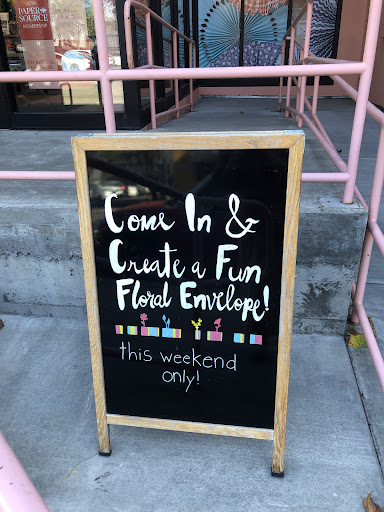 PAPER
SOURCE
Come In &
Create a Fun
Floral Envelope!
this weekend
only!